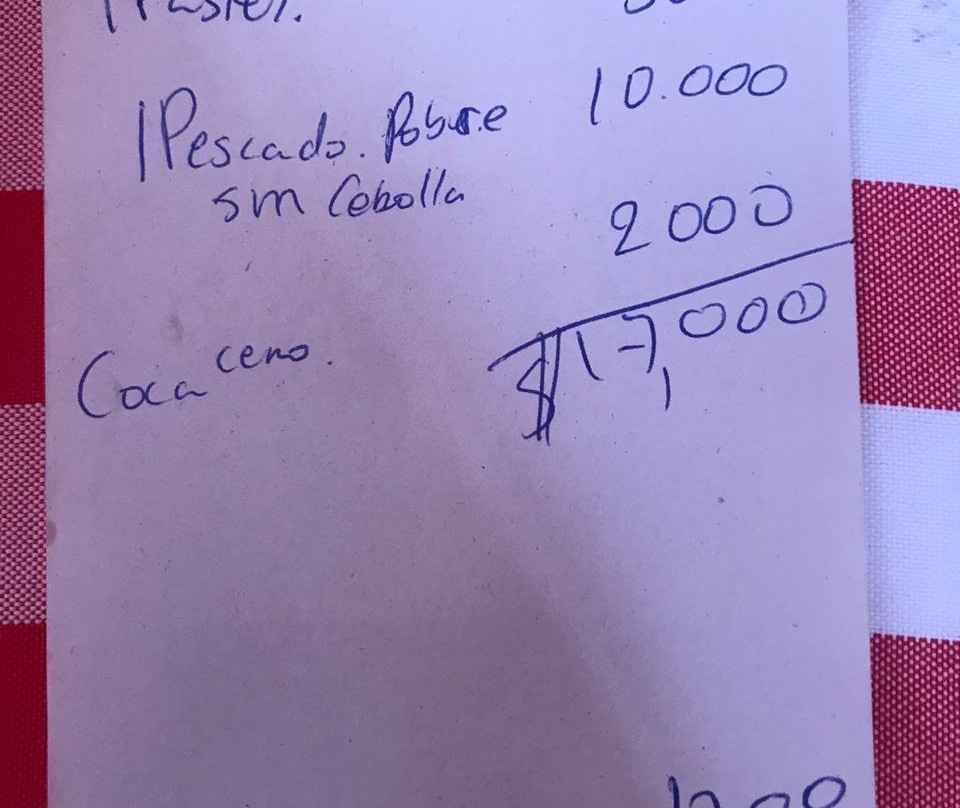 1 Pastel.
1 Pescado. Pobure 10.000
sin Cebolla
2000
Coca cero.
$ 17,000